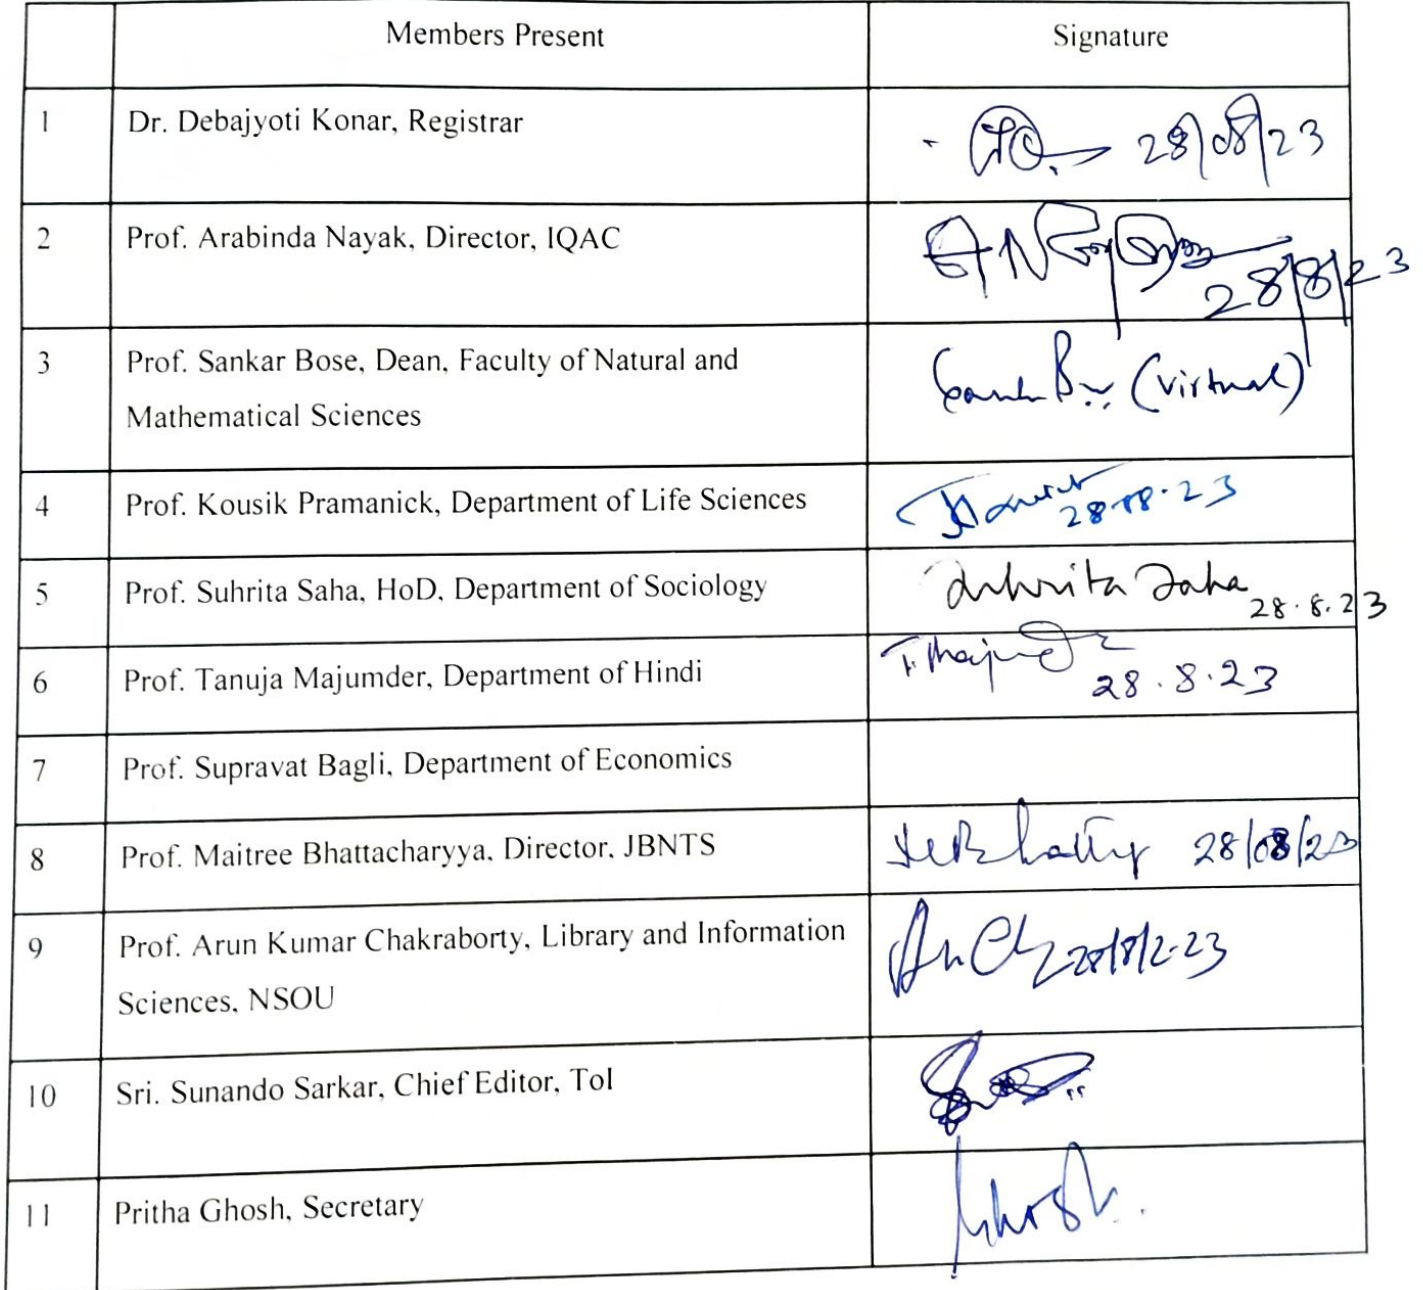 Members Present Signature
1 Dr. Debajyoti Konar, Registrar 28/08/23
2 Prof. Arabinda Nayak, Director, IQAC
28/8/23
3 Prof. Sankar Bose, Dean, Faculty of Natural and (virtual)
Mathematical Sciences
4 Prof. Kousik Pramanick, Department of Life Sciences 28.08.23
5 Prof. Suhrita Saha, HoD, Department of Sociology Suhrita Saha
28.8.23
6 Prof. Tanuja Majumder, Department of Hindi
28.8.23
7 Prof. Supravat Bagli, Department of Economics
8 Prof. Maitree Bhattacharyya, Director, JBNTS 28/08/23
9 Prof. Arun Kumar Chakraborty, Library and Information
Sciences, NSOU
10 Sri. Sunando Sarkar, Chief Editor, ToI
11 Pritha Ghosh, Secretary